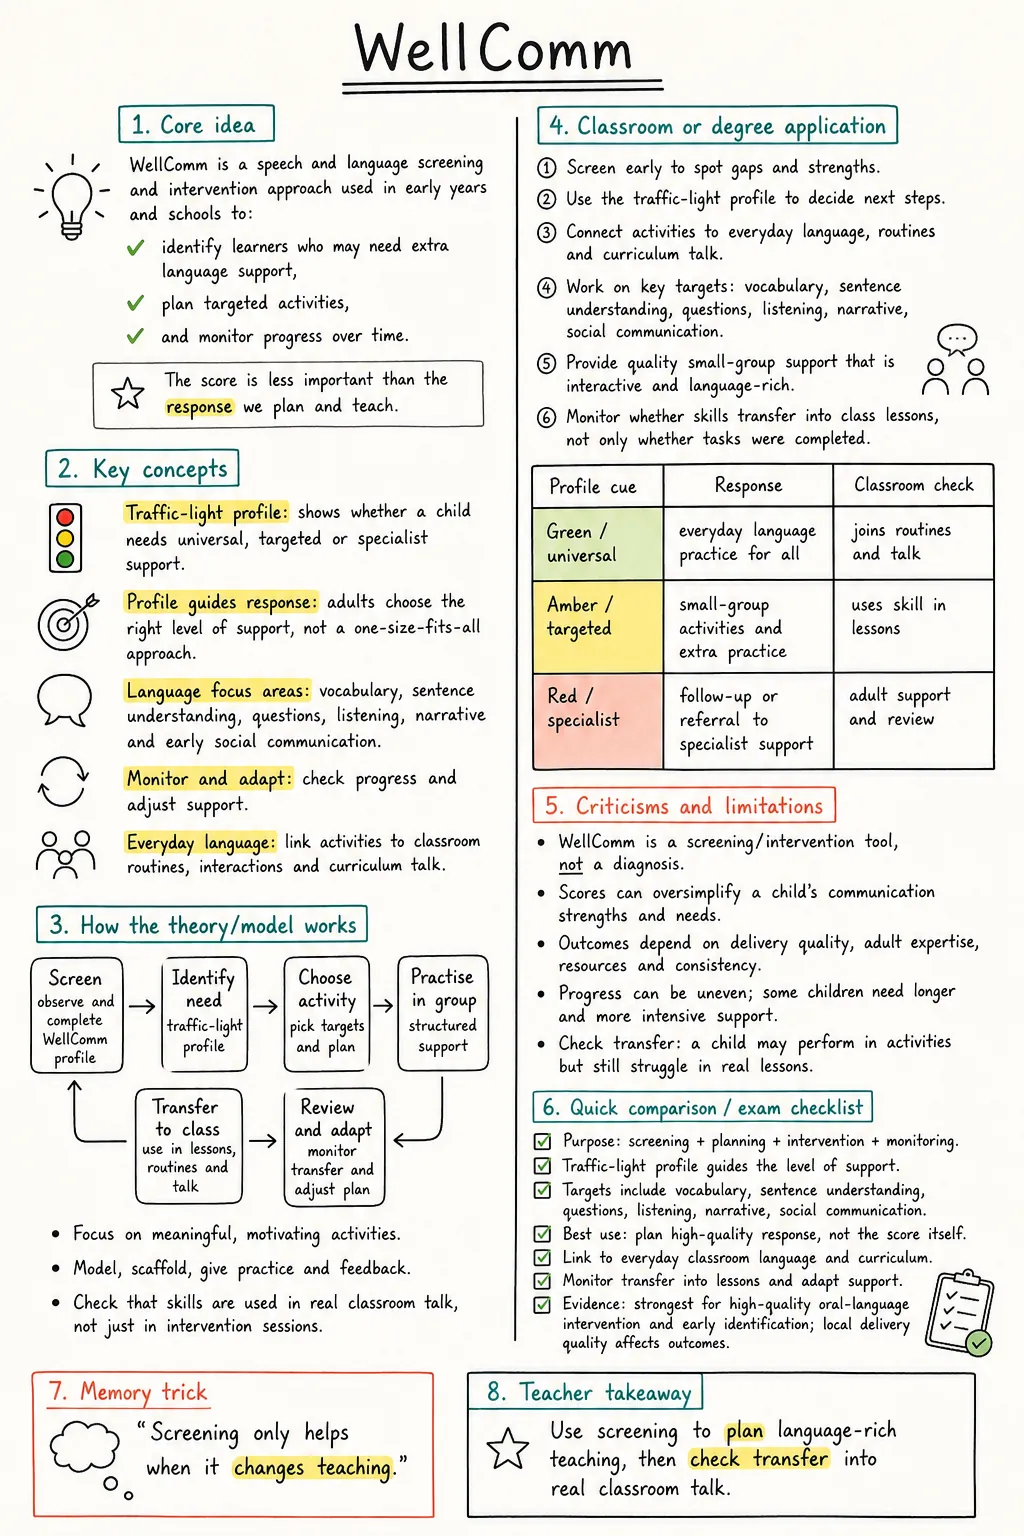 WellComm
1. Core idea
WellComm is a speech and language screening
and intervention approach used in early years
and schools to:
✓ identify learners who may need extra
language support,
✓ plan targeted activities,
✓ and monitor progress over time.
The score is less important than the
response we plan and teach.
2. Key concepts
Traffic-light profile: shows whether a child
needs universal, targeted or specialist
support.
Profile guides response: adults choose the
right level of support, not a one-size-fits-all
approach.
Language focus areas: vocabulary, sentence
understanding, questions, listening, narrative
and early social communication.
Monitor and adapt: check progress and
adjust support.
Everyday language: link activities to classroom
routines, interactions and curriculum talk.
3. How the theory/model works
Screen
observe and
complete
WellComm
profile
Identify
need
traffic-light
profile
Choose
activity
pick targets
and plan
Practise
in group
structured
support
Transfer
to class
use in lessons,
routines and
talk
Review
and adapt
monitor
transfer and
adjust plan
• Focus on meaningful, motivating activities.
• Model, scaffold, give practice and feedback.
• Check that skills are used in real classroom talk,
not just in intervention sessions.
4. Classroom or degree application
1 Screen early to spot gaps and strengths.
2 Use the traffic-light profile to decide next steps.
3 Connect activities to everyday language, routines
and curriculum talk.
4 Work on key targets: vocabulary, sentence
understanding, questions, listening, narrative,
social communication.
5 Provide quality small-group support that is
interactive and language-rich.
6 Monitor whether skills transfer into class lessons,
not only whether tasks were completed.
Profile cue
Response
Classroom check
Green /
universal
everyday language
practice for all
joins routines
and talk
Amber /
targeted
small-group
activities and
extra practice
uses skill in
lessons
Red /
specialist
follow-up or
referral to
specialist support
adult support
and review
5. Criticisms and limitations
• WellComm is a screening/intervention tool,
not a diagnosis.
• Scores can oversimplify a child's communication
strengths and needs.
• Outcomes depend on delivery quality, adult expertise,
resources and consistency.
• Progress can be uneven; some children need longer
and more intensive support.
• Check transfer: a child may perform in activities
but still struggle in real lessons.
6. Quick comparison / exam checklist
Purpose: screening + planning + intervention + monitoring.
Traffic-light profile guides the level of support.
Targets include vocabulary, sentence understanding,
questions, listening, narrative, social communication.
Best use: plan high-quality response, not the score itself.
Link to everyday classroom language and curriculum.
Monitor transfer into lessons and adapt support.
Evidence: strongest for high-quality oral-language
intervention and early identification; local delivery
quality affects outcomes.
7. Memory trick
"Screening only helps
when it changes teaching."
8. Teacher takeaway
Use screening to plan language-rich
teaching, then check transfer into
real classroom talk.